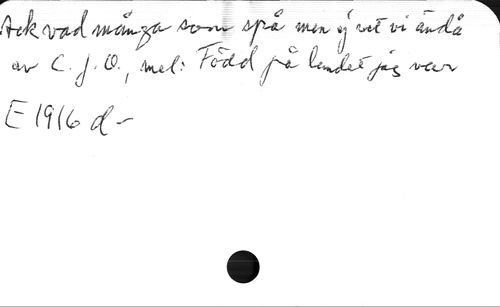 Ack vad många som spå men ej vet vi ändå
av C. J. O., mel: Född på landet jag var
E 1916 d-